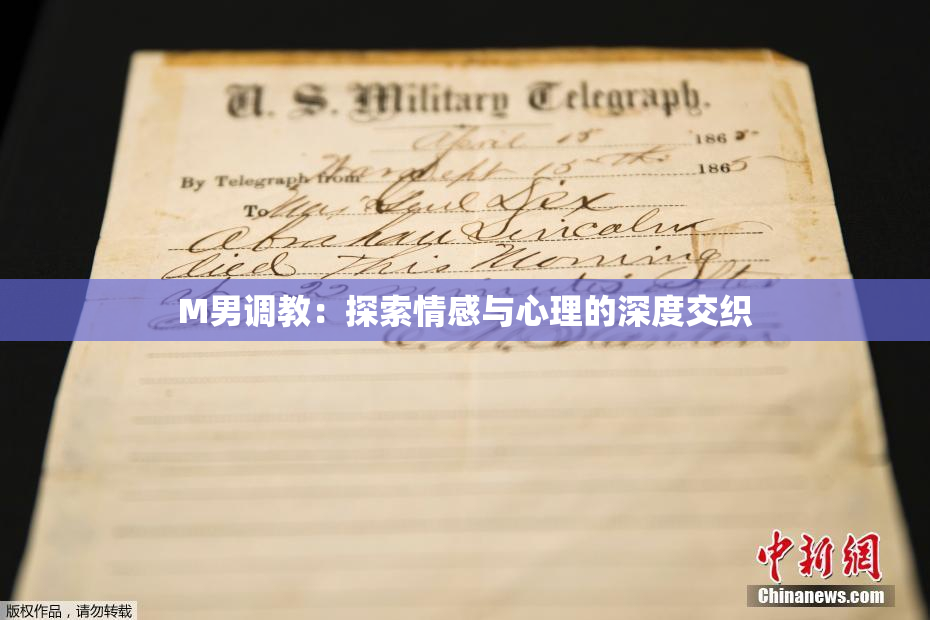 U. S. Military Telegraph.
April 15 1865
By Telegraph from War Dept 15th 1865
To Maj Genl Dix
Abraham Lincoln
died This Morning
at 22 minutes after
M男调教：探索情感与心理的深度交织
E. M. Stanton
中新網
Chinanews.com
版权作品，请勿转载